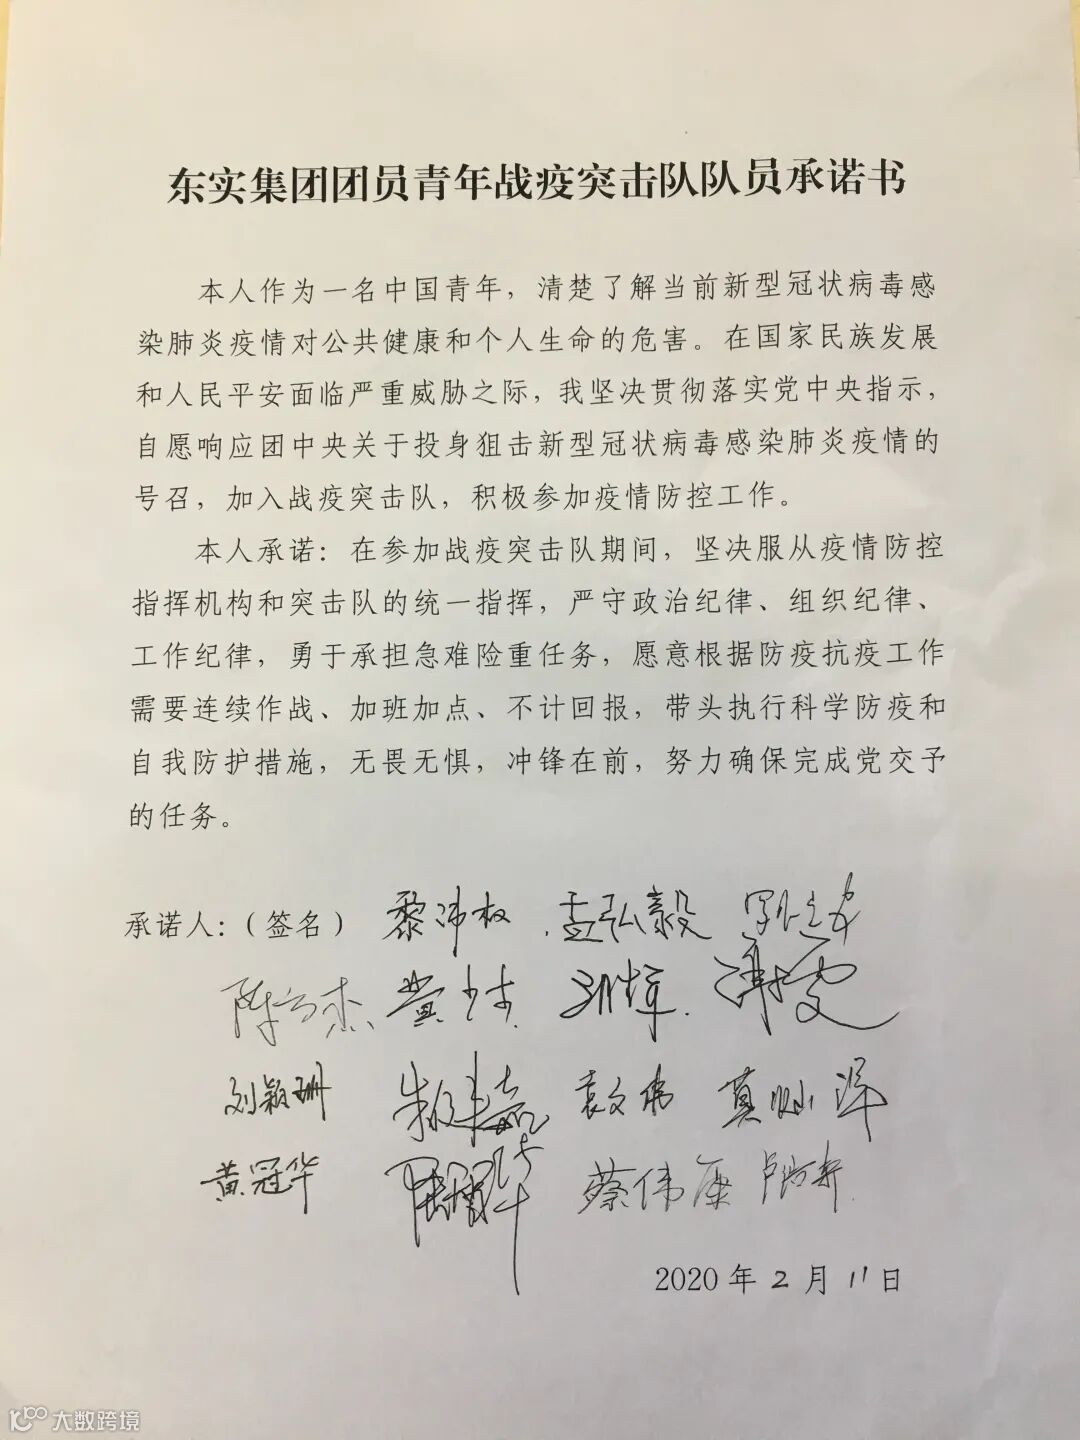 东实集团团员青年战疫突击队队员承诺书
本人作为一名中国青年，清楚了解当前新型冠状病毒感
染肺炎疫情对公共健康和个人生命的危害。在国家民族发展
和人民平安面临严重威胁之际，我坚决贯彻落实党中央指示，
自愿响应团中央关于投身狙击新型冠状病毒感染肺炎疫情的
号召，加入战疫突击队，积极参加疫情防控工作。
本人承诺：在参加战疫突击队期间，坚决服从疫情防控
指挥机构和突击队的统一指挥，严守政治纪律、组织纪律、
工作纪律，勇于承担急难险重任务，愿意根据防疫抗疫工作
需要连续作战、加班加点、不计回报，带头执行科学防疫和
自我防护措施，无畏无惧，冲锋在前，努力确保完成党交予
的任务。
承诺人：（签名） 黎沛权 孟弘毅
陈方杰
刘颖珊 袁文伟
黄冠华 蔡伟康
2020 年 2 月 11 日
大数跨境